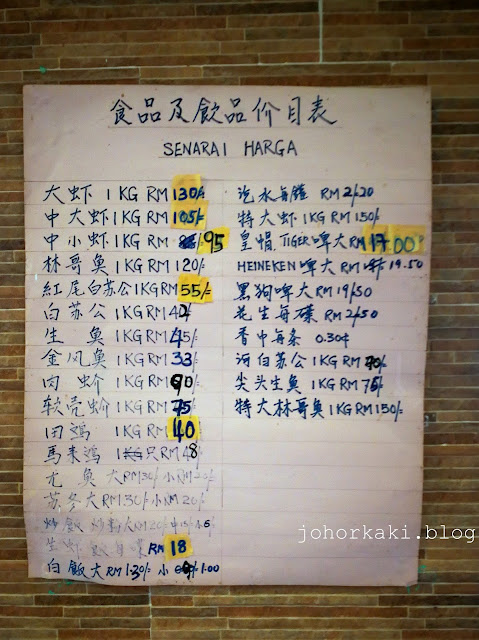 食品及飲品价目表
SENARAI HARGA
大虾 1KG RM 130/-
中大虾 1KG RM 105/-
中小虾 1KG RM 95
林哥魚 1KG RM 120/-
紅尾白苏公 1KG RM 55/-
白苏公 1KG RM
生魚 1KG RM 45/-
金风魚 1KG RM 33/-
肉蚧 1KG RM 90/-
软壳蚧 1KG RM 75/-
田鸡 1KG RM 40
馬来鸡 1只 RM 48
尤魚 大RM30/- 小RM20/-
苏冬大RM30/- 小RM20/-
炒飯 炒粉大RM20/-
生虾飯 RM 18
白飯大RM1.30/- 小 1.00
汽水每罐 RM 2/20
特大虾 1KG RM 150/-
皇帽 TIGER 啤大RM 17.00
HEINEKEN 啤大 RM 19.50
黑狗啤大RM 19/50
花生每碟 RM 2/50
香巾每条 0.30¢
河白苏公 1KG RM
尖头生魚 1KG RM 75/-
特大林哥魚 1KG RM 150/-
johorkaki.blog